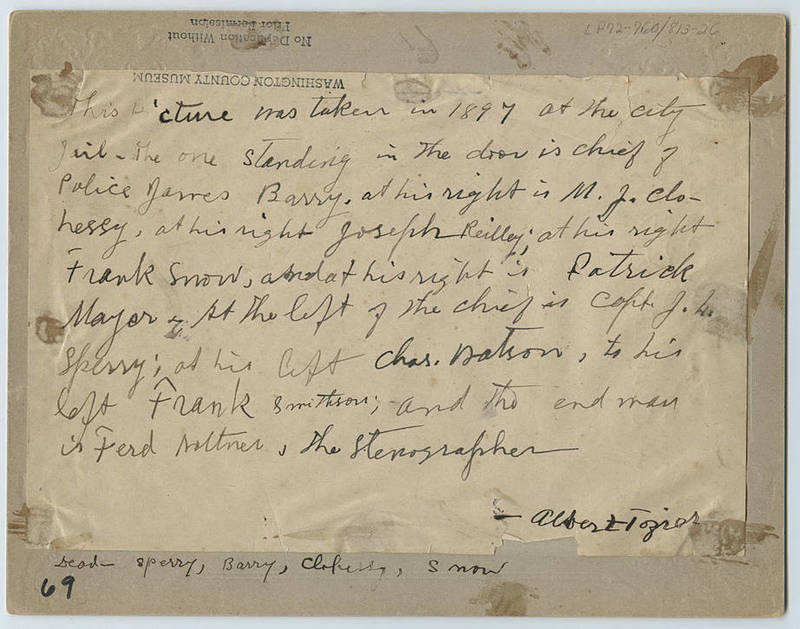 No Duplication Without
Prior Permission
LP72-760/813-26
WASHINGTON COUNTY MUSEUM
This Picture was taken in 1897 at the city
Jail - the one standing in the door is chief of
Police James Barry, at his right is M. J. Clo-
hessy, at his right Joseph Reilley; at his right
Frank Snow, and at his right is Patrick
Mayer. At the left of the chief is Capt. J. L.
Sperry; at his left Chas. Watson, to his
left Frank Smithson; and the end man
is Ferd Noltner, the stenographer
- Albert Tozier
Dead - Sperry, Barry, Clohessy, Snow
69